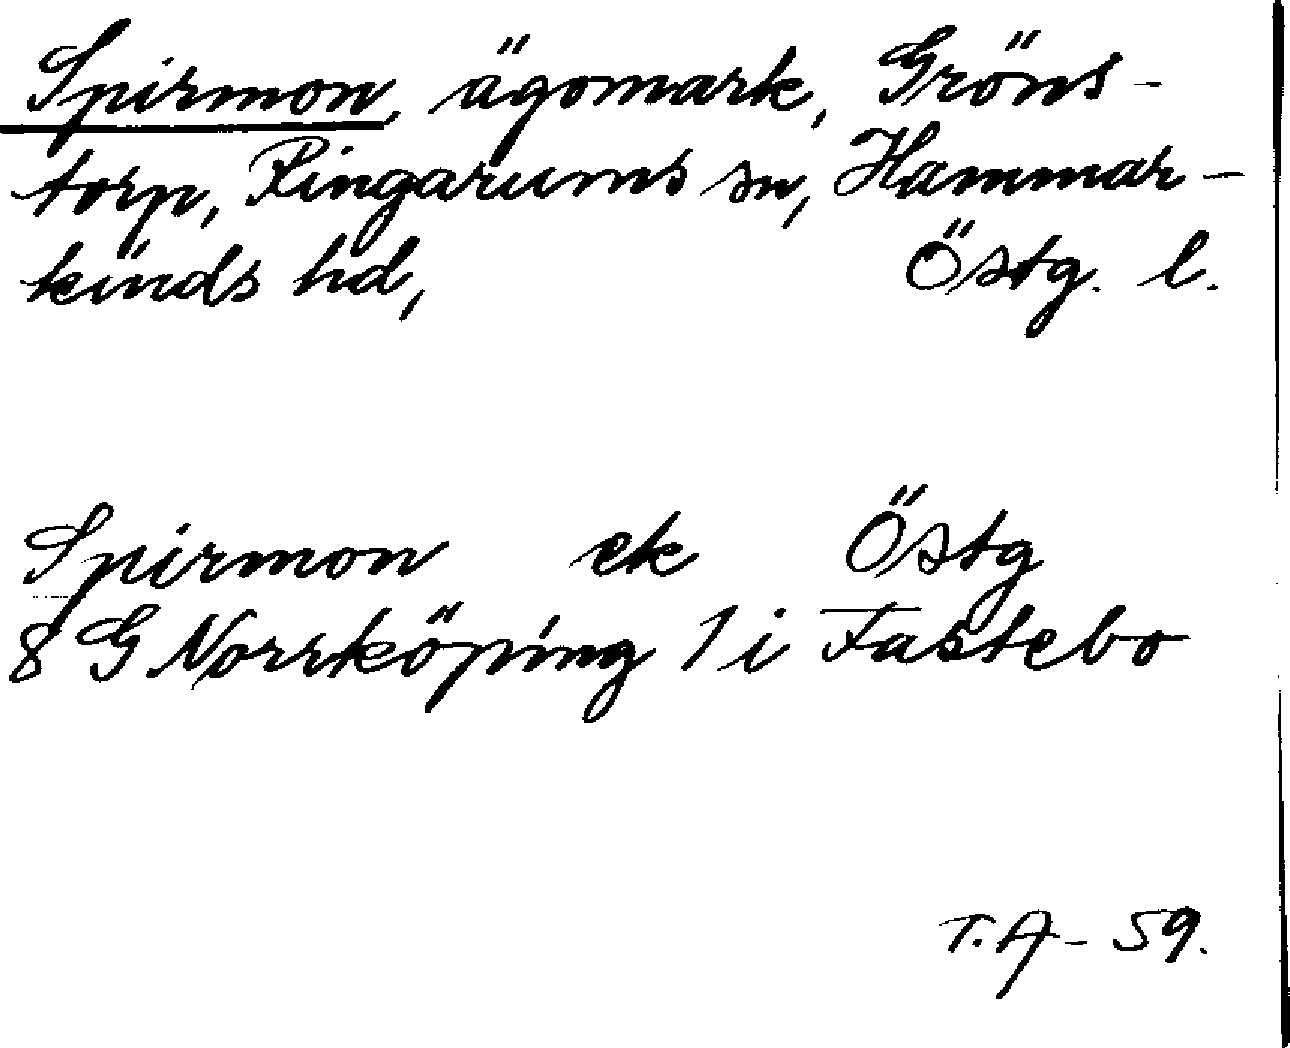 Spirmon, ägomark, Gröns-
torp, Ringarums sn, Hammar-
kinds hd, Östg. l.
Spirmon ek Östg
8 G Norrköping 1 i Fastebo
T.A - 59.